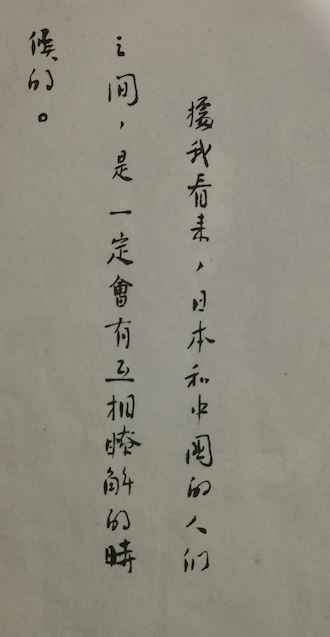 據我看来,日本和中國的人们
之间,是一定會有互相瞭解的時
候的。